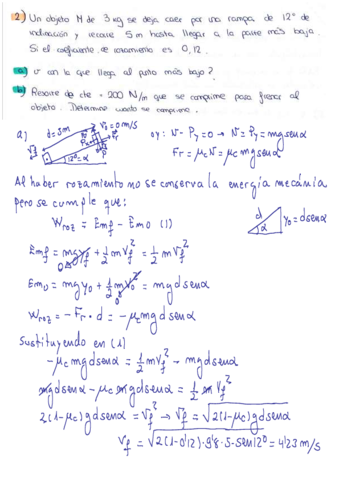 2) Un objeto M de 3 kg se deja caer por una rampa de 12° de
inclinación y recorre 5m hasta llegar a la parte más baja.
Si el coeficiente de rozamiento es 0,12.
a) v con la que llega al punto más bajo?
b) Resorte de cte = 200 N/m que se comprime para frenar al
objeto. Determine cuanto se comprime.
a) d=5m V₀=0m/s
12º=α
oy: N-Py=0 → N=Py=mgsenα
Fr=μcN=μcmgsenα
Al haber rozamiento no se conserva la energía mecánica
pero se cumple que:
Wroz = Emf - Em0 (1)
d α y₀=dsenα
Emf = mgyf + 1/2 mVf² = 1/2 mVf²
0
Em0 = mgy0 + 1/2 mV0² = mgdsenα
0
Wroz = -Fr·d = -μcmgdsenα
Sustituyendo en (1)
-μcmgdsenα = 1/2 mVf² - mgdsenα
mgdsenα - μcmgdsenα = 1/2 mVf²
2(1-μc)gdsenα = Vf² → Vf = √2(1-μc)gdsenα
Vf = √2(1-0'12)·9'8·5·sen12º = 4'23 m/s